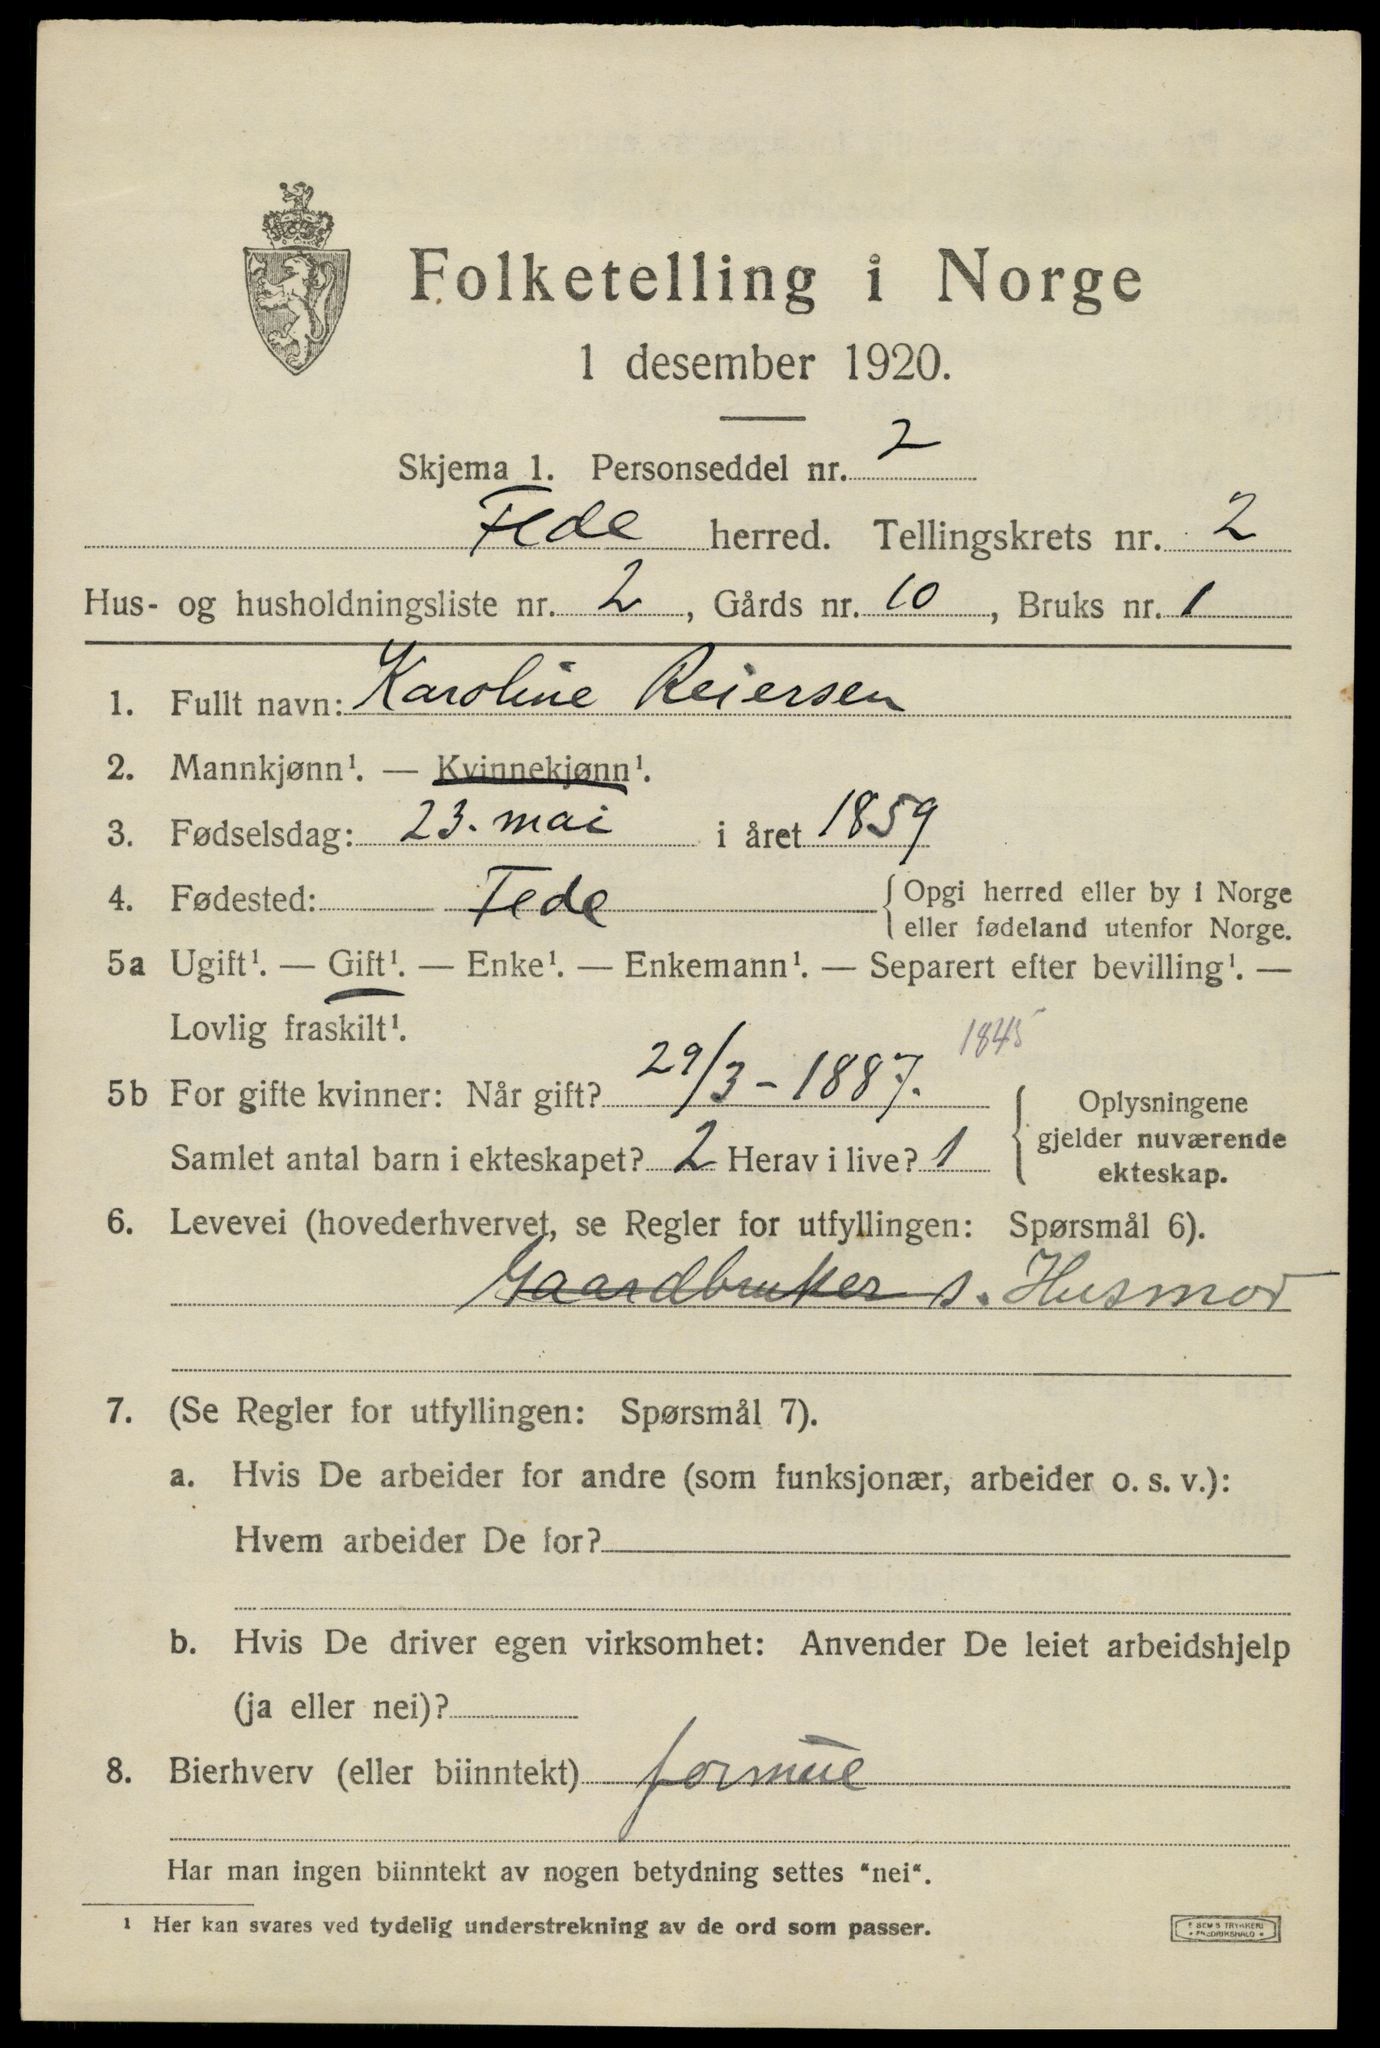 Folketelling i Norge
1 desember 1920.
Skjema 1. Personseddel nr. 2
Fede herred. Tellingskrets nr. 2
Hus- og husholdningsliste nr. 2, Gårds nr. 10, Bruks nr. 1
1. Fullt navn: Karoline Reiersen
2. Mannkjønn¹. — Kvinnekjønn¹.
3. Fødselsdag: 23. mai i året 1859
4. Fødested: Fede {Opgi herred eller by i Norge
eller fødeland utenfor Norge.
5a Ugift¹. — Gift¹. — Enke¹. — Enkemann¹. — Separert efter bevilling¹. —
Lovlig fraskilt¹.
1845
5b For gifte kvinner: Når gift? 29/3 - 1887.
Samlet antal barn i ekteskapet? 2 Herav i live? 1
{Oplysningene
gjelder nuværende
ekteskap.
6. Levevei (hovederhvervet, se Regler for utfyllingen: Spørsmål 6).
Gaardbruker s. Husmor
7. (Se Regler for utfyllingen: Spørsmål 7).
a. Hvis De arbeider for andre (som funksjonær, arbeider o. s. v.):
Hvem arbeider De for?
b. Hvis De driver egen virksomhet: Anvender De leiet arbeidshjelp
(ja eller nei)?
8. Bierhverv (eller biinntekt) formue
Har man ingen biinntekt av nogen betydning settes “nei“.
¹ Her kan svares ved tydelig understrekning av de ord som passer.
SEM'S TRYKKERI
FREDRIKSHALD